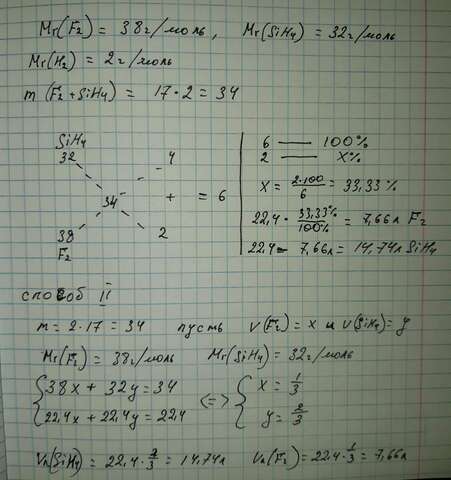 Mr(F₂) = 38г/моль, Mr(SiH₄) = 32г/моль
Mr(H₂) = 2г/моль
m(F₂+SiH₄) = 17·2 = 34
SiH₄
32 4
34 + = 6
38 2
F₂
6 — 100%
2 — X%
X = 2·100/6 = 33,33%
22,4 · 33,33%/100% = 7,66л F₂
22,4 - 7,66л = 14,74л SiH₄
способ II
m = 2·17 = 34 пусть ν(F₂) = x и ν(SiH₄) = y
Mr(F₂) = 38г/моль Mr(SiH₄) = 32г/моль
{ 38x + 32y = 34 <=> { x = 1/3
22,4x + 22,4y = 22,4 y = 2/3
Vн(SiH₄) = 22,4 · 2/3 = 14,74л Vн(F₂) = 22,4 · 1/3 = 7,66л